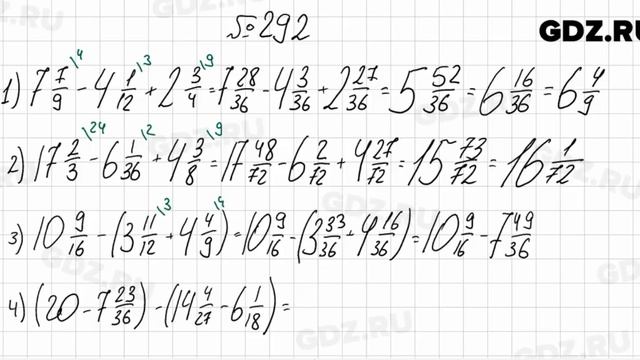 №292
GDZ.RU
1) 7 7/9 |4 - 4 1/12 |3 + 2 3/4 |9 = 7 28/36 - 4 3/36 + 2 27/36 = 5 52/36 = 6 16/36 = 6 4/9
2) 17 2/3 |24 - 6 1/36 |2 + 4 3/8 |9 = 17 48/72 - 6 2/72 + 4 27/72 = 15 73/72 = 16 1/72
3) 10 9/16 - (3 11/12 |3 + 4 4/9 |4) = 10 9/16 - (3 33/36 + 4 16/36) = 10 9/16 - 7 49/36
4) (20 - 7 23/36) - (14 4/27 - 6 1/18) =
GDZ.RU